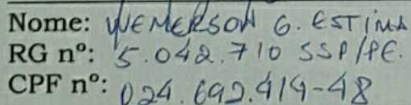 Nome: WEMERSON G. ESTIMA
RG nº: 5.042.710 SSP/PE.
CPF nº: 024.692.414-48